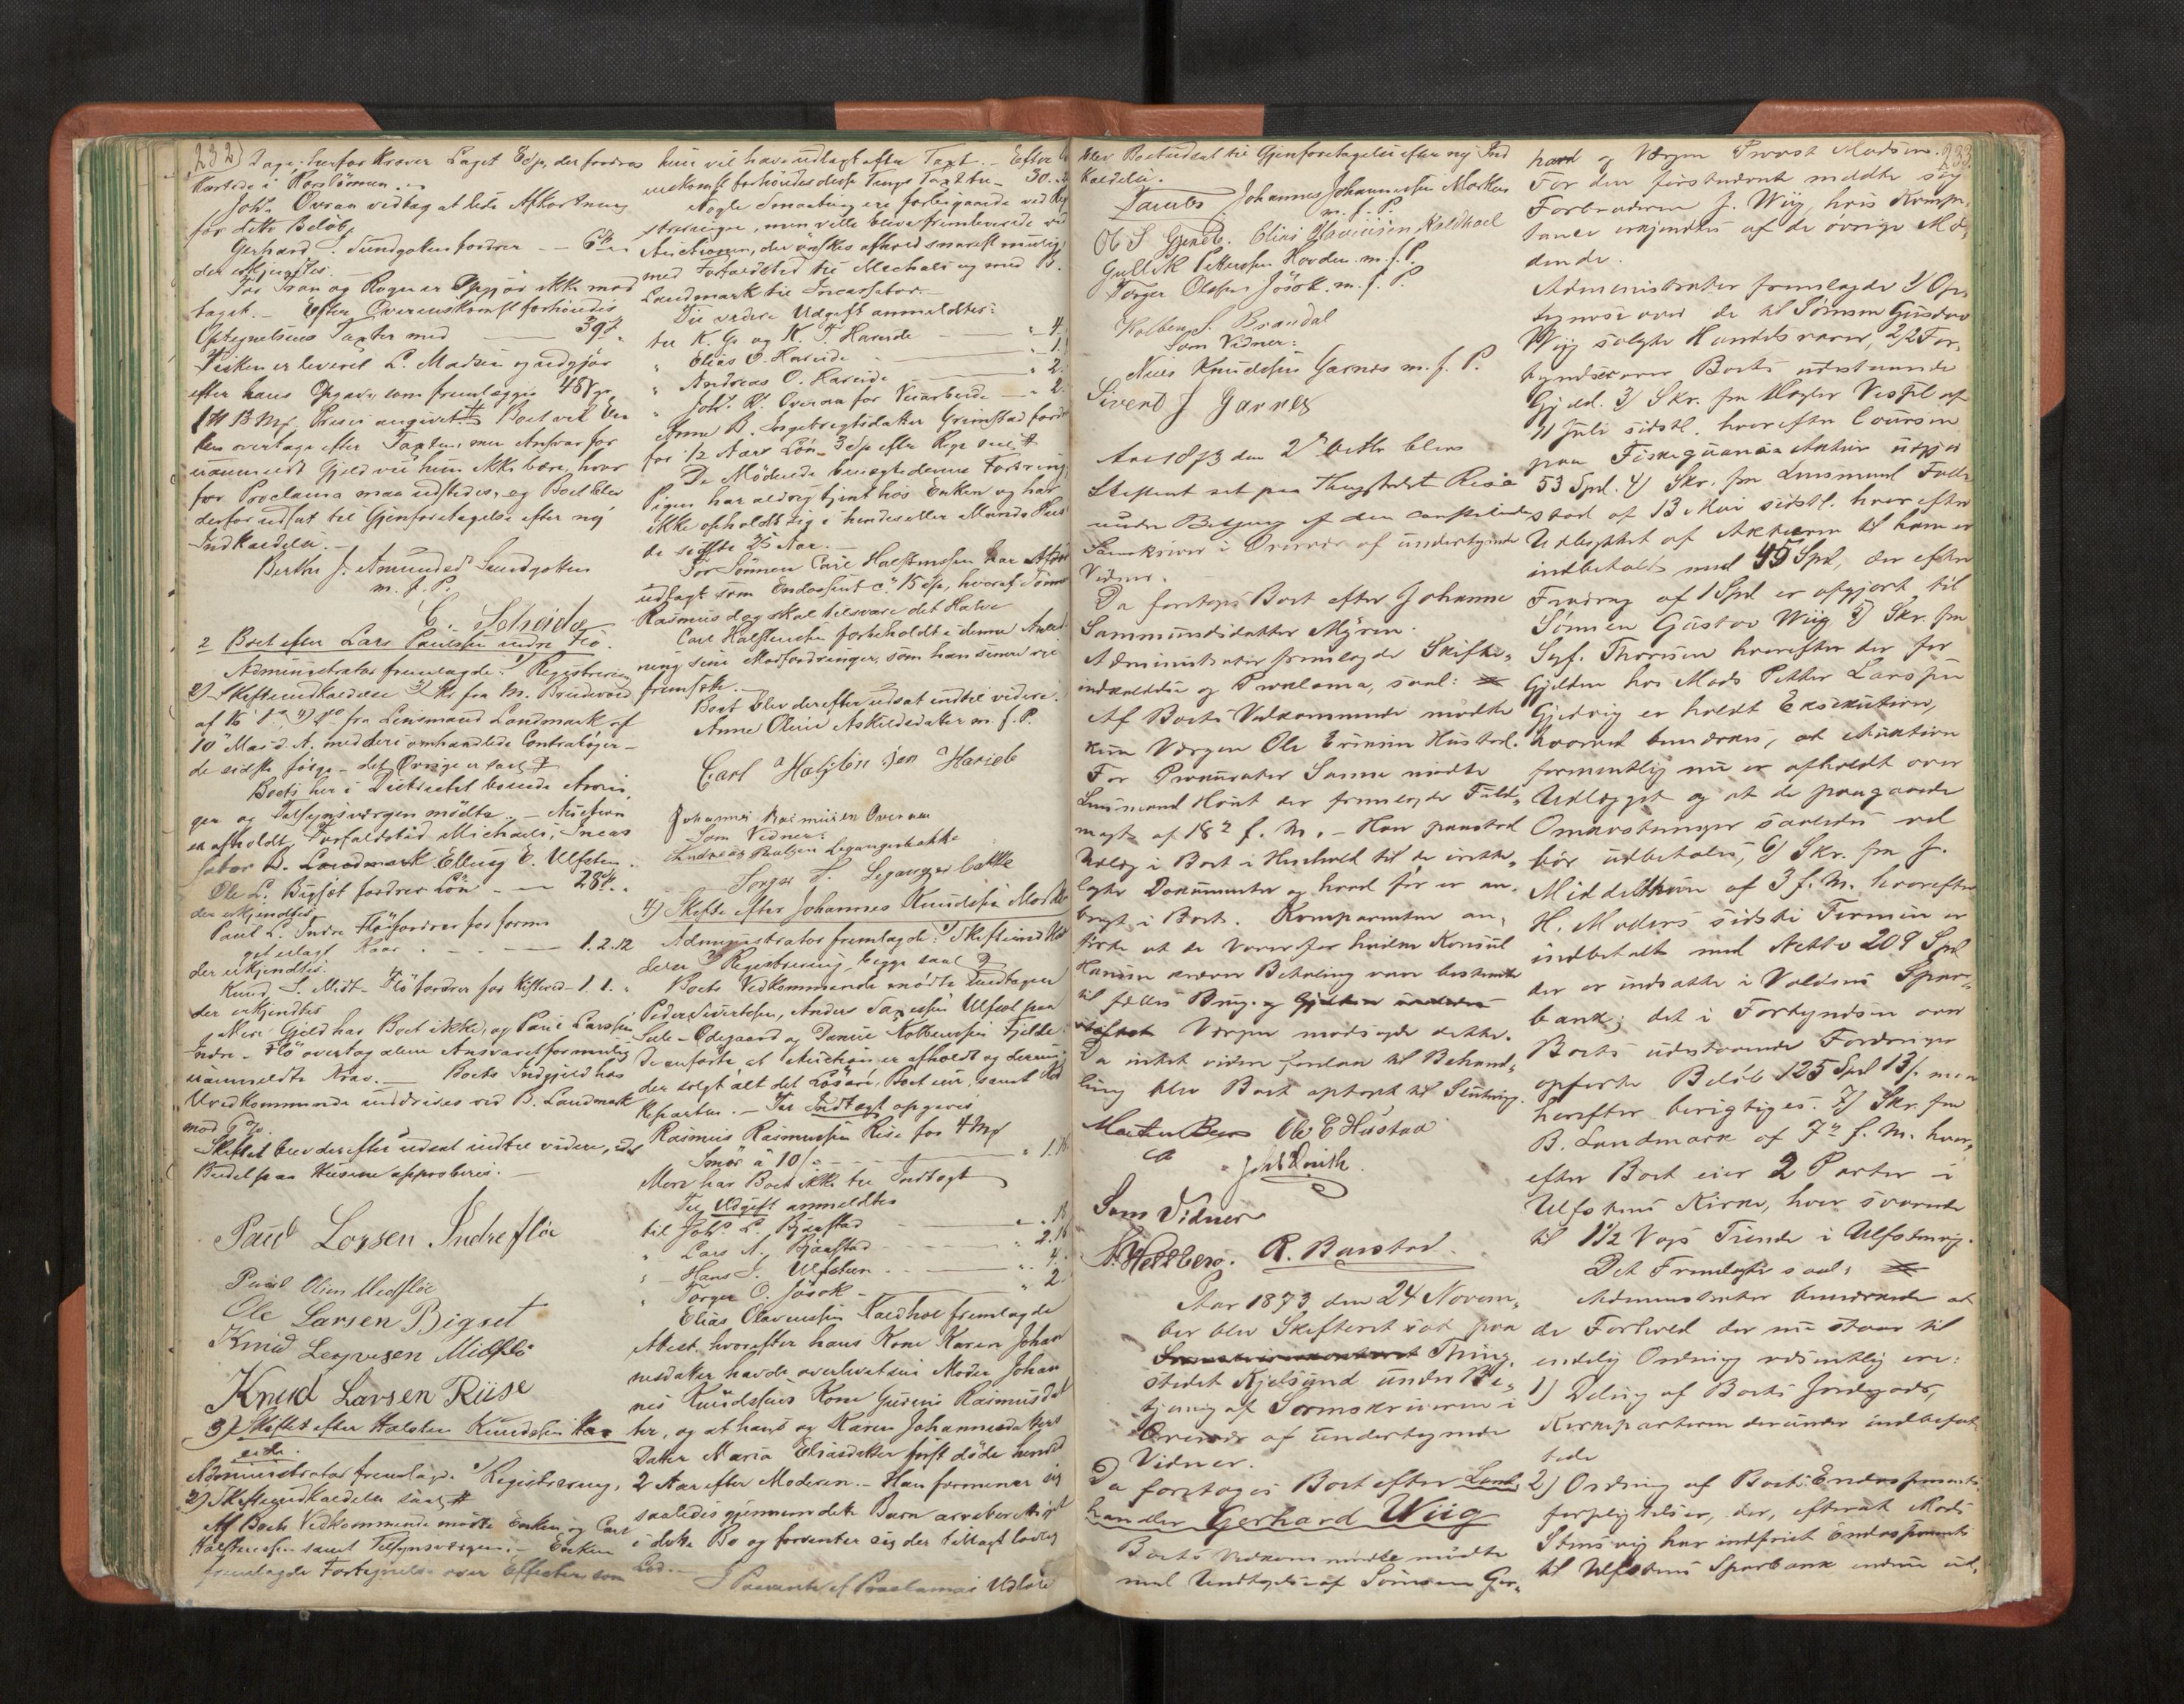 232)
Dage; herfor kræver Laget 8 Sp, der fordres
Joh. Overaa vedtog at lide Afkortning
for dette Beløb.
Gerhard J. Sundgoten fordrer
der erkjendtes.
For Iver og Roger er Opgjør ikke mod
taget. - Efter Overenskomst forhøiedes
Optegnelsens Taxter med 39
Fisken er leveret L. Madsen og udgjør
efter hans Opgave, som fremlægges 48
Prisen angivet Boet vil En
ken overtage efter Taxten, men Ansvar for
uanmeldt Gjeld vil hun ikke bære, hvor
for Proclama maa udstedes, og Boet blev
derfor udsat til Gjenforetagelse efter ny
Indkaldelse.
Berthe J. Amunds Sundgoten
m. f. P.
C. Scheide
2 Boet efter Lars Paulssen indre Flø.
Administrator fremlagde: 1) Registrering
2) Skifteindkaldelse 3) Skr. fra M. Brudevold
af 16 4) fra Lensmand Landmark af
10 Mai d. A. med deri omhandlede Contrabøger -
de sidste følge - det Øvrige er saal.
Boets her i Districtet boende Arvin,
ger og Tilsynsværgen mødte. - Auction
er afholdt, Forfaldstid Michaeli, Incas
sator B. Landmark Elling E. Ulfsten.
Ole L. Bigset fordrer Løn - 28
der erkjendtes.
Paul L. Indre Flø fordrer for forme
get erlagt Kaar 1. 2. 12
der erkjendtes.
Knud S. Midt-Flø fordrer for Kistved - 1. 1.
der erkjendtes
Mere Gjeld har Boet ikke, og Paul Larssen
Indre-Flø overtog alene Ansvaret for mulig
uanmeldte Krav. - Boets Indgjeld hos
Uvedkommende inddrives ved B. Landmark
mod 6 %
Skiftet blev derefter udsat indtil videre,
Budet paa Husene approberes. -
Paul Larsen Indreflöe
Paul Olsen Medflöe
Ole Larsen Bigset
Knud Midflö
Knud Larsen Riise
3) Skiftet efter Halsten Knudsen Har
eide.
Administrator fremlagde: 1) Registrering,
2) Skifteindkaldelse saal.
Af Boets Vedkommende mødte Enken og Carl
Halstensen samt Tilsynsværgen. - Enken
fremlagde Fortegnelse over Effecter som
hun vil have udlagt efter Taxt. - Efter
enskomst forhøiedes disse Tings Taxt til - 30.
Nogle Smaating ere forbigaaede ved Reg
streringen, men ville blive fremleverede ved
Auctionen, der ønskes afholdt snarest mulig
med Forfaldstid til Michaeli og med B.
Landmark til Incassator. -
Til videre Udgift anmeldtes:
til K. G. og K. T. Hareide - 4.
" Elias O. Hareide - 1.
" Andreas O. Hareide - 2.
" Joh. R. Overaa for Veiarbeide - 2.
Anne B. Ingebrigtsdatter Grimstad fordr
for 1/2 Aars Løn 3 Sp efter Regn. saal.
De Mødende benegte denne Fordring
Pigen har aldrig tjent hos Enken og har
ikke opholdt sig i hendes eller Mands Huus
de sidste 25 Aar.
For Sønnen Carl Halstensen har Afdøde
udlagt som Endossent c. 15 Sp, hvoraf Sønnen
Rasmus dog skal tilsvare det Halve
Carl Halstensen forbeholdt i denne Anled
ning sine Modfordringer, som han senere vil
fremsætte.
Boet blev derefter udsat indtil videre.
Anne Oline Askildsdatter m. f. P.
Carl Halstensen Harieide
Johannes Rasmusen Overaa
Som Vidner:
Andreas Paulsen Leganger bakke
Torger T. Leganger bakke
4) Skifte efter Johannes Knudssen Mork
Administrator fremlagde: 1) Skifteindkal
delse 2) Registrering, begge saal.
Boets Vedkommende mødte undtagen
Peder Sivertsen, Anders Ulfset paa
Sule-Ødegaard og Daniel Kolbeinssen Fjelde
De anførte at Auction er afholdt og derved
der solgt alt det Løsøre, Boet eier, samt
- Til Indtægt opgaves
Rasmus Rasmussen Rise for 4 Mk
Smør à 10 1.16
Mere har Boet ikke til Indtægt
Til Udgift anmeldtes
til Joh. L. Bjaastad
" Lars A. Bjaastad 2.16
" Hans J. Ulfsten 4.
" Torger O. Jøsok - 2
Elias Olavessen Kaldhol fremlagde
Attest, hvorefter hans Kone Karen Johan
nesdatter havde overlevet sin Moder Johan
nes Knudssens Kone Gurine Rasmusdat
ter, og at hans og Karen Johannesdatters
Datter Maria Eliasdatter først døde henved
2 Aar efter Moderen. - Han formener sig
saaledes gjennem dette Barn arveberettiget
i dette Bo og forventer sig der tillagt lovlig
Lod. -
I Paavente af Proclamas Udløb
blev Boet udsat til Gjenforetagelse efter ny Ind
kaldelse.
Jacobs Johannes Johannesen Morken
m. f. P.
Ole S Gjerde. Elias Olavesen Kaldhoel
Gullik Pettersen Hovden m. f. P.
Torger Olssen Jösok. m. f. P.
Kolben S. Brandal
Som Vidner:
Nils Knudssen Garnes m. f. P.
Sivert J Garnes
Aar 1873 den 2 Oktbr blev
Skifteret sat paa Thingstedet Rise
under Betjening af den constituerede
Sorenskriver i Overvær af undertegnede
Vidner.
Da foretoges Boet efter Johanne
Sammundsdatter Myren.
Administrator fremlagde Skifte,
indkaldelse og Proklama, saal:
Af Boets Vedkommende mødte
kun Værgen Ole Eriksen Hustad.
For Prokurator Sanne mødte
Lensmand Houst der fremlagde Fuld,
magt af 18 f. M. - Han paastod
Udlæg i Boet i Henhold til de irette,
lagte Dokumenter og hvad før er an,
bragt i Boet. Komparenten an,
førte at de Varer for hvilke Konsul
Hansen kræver Betaling vare bestemte
til fælles Brug og
Værgen modsagde dette.
Da intet videre forelaa til Behand,
ling blev Boet optaget til Slutning.
Ole E Hustad
Som Vidner
Hellberg. R. Barstad.
Aar 1873 den 24 Novem,
ber blev Skifteret sat paa
Thing,
stedet Kjelsund under Be,
tjening af Sorenskriveren i
Overvær af undertegnede
Vidner.
Da foretoges Boet efter Land,
handler Gerhard Wiig
Boets Vedkommende mødte
med Undtagelse af Sønnen Ger,
233
hard og Værgen Provst Madsen.
For den førstnævnte meldte sig
Forbroderen J. Wiig, hvis Kompe,
tance erkjendtes af de øvrige Mø,
dende.
Administrator fremlagde 1) Op,
tegnelse over de til Sønnen Gustav
Wiig solgte Handelsvarer, 2) For,
tegnelse over Boets udestaaende
Gjeld. 3) Skr. fra Foged Vestfl. af
11 Juli sidstl. hvorefter Coursen
paa Fiskeguano Aktier udgjør
53 Spd. 4) Skr. fra Lensmand Falk
stad af 13 Mai sidstl. hvorefter
Udbyttet af Aktierne til ham er
indbetalt med 45 Spd, der efter
Fradrag af 1 Spd er opgjort til
Sønnen Gustav Wiig 5) Skr. fra
Sagf. Thoresen hvorefter der for
Gjelden hos Mads Petter Larssen
Gjedrig er holdt Exekution,
hvorved bemærkes, at Auktion
formentlig nu er afholdt over
Udlægget og at de paagaaende
Omkostninger saaledes vel
bør udbetales, 6) Skr. fra J.
Middelthon af 3 f. M. hvorefter
H. Møllers sidste Termin er
indbetalt med Netto 209 Spd
der er indsatte i Voldens Spar,
bank; det i Fortegnelsen over
Boets udestaaende Fordringer
opførte Beløb 125 Spd 13 maa
herefter berigtiges. 7) Skr. fra
B. Landmark af 7 f. M. hvor,
efter Boet eier 2 Parter i
Ulfstens Kirke, hver svarende
til 1 1/2 Vogs Tiende i Ulfstenvig.
Det Fremlagte saal:
Administrator bemærkede at
de Forhold der nu staar til
endelig Ordning væsentlig ere:
1) Deling af Boets Jordegods,
Kirkeparterne derunder indbefat,
tede
2) Ordning af Boets Endossements
forpligtelser, der, efterat Mads
Stensvig har indfriet Endossement
til Ulfstens Sparebank endnu ud,